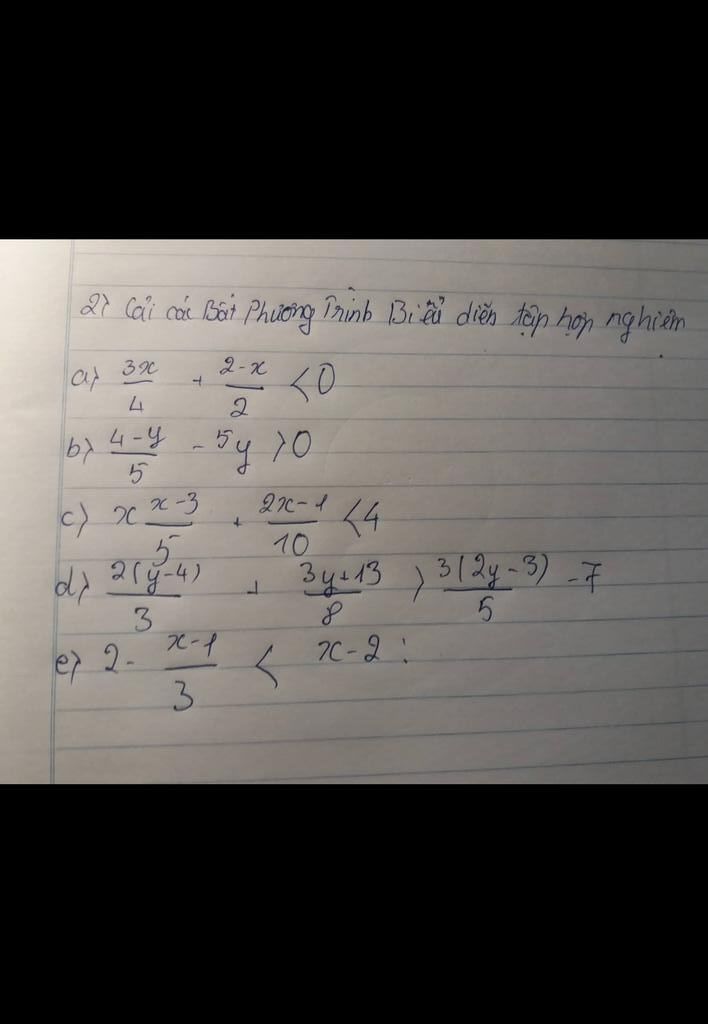 2) Cải các Bất Phương Trình Biểu diễn tập hợp nghiệm.
a) 3x/4 + 2-x/2 < 0
b) 4-y/5 - 5y > 0
c) x x-3/5 + 2x-1/10 < 4
d) 2(y-4)/3 + 3y+13/8 > 3(2y-3)/5 - 7
e) 2 - x-1/3 < x-2 :